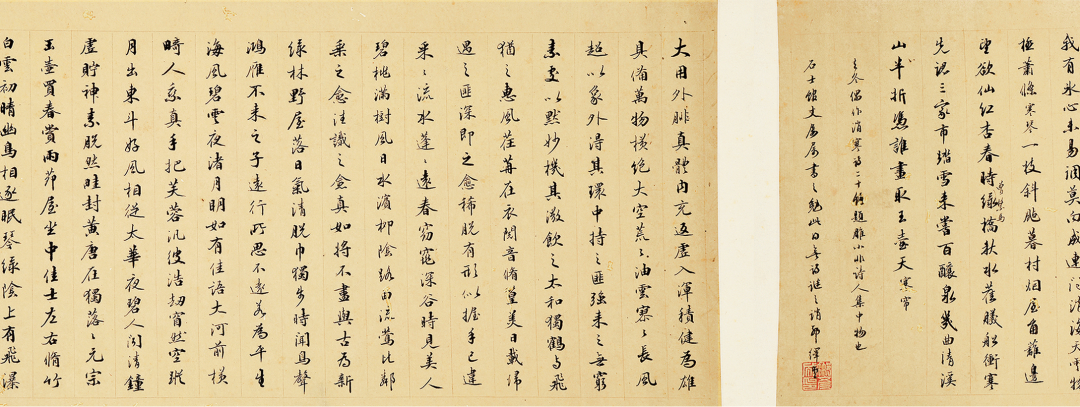 我有氷心未易涸莫向成連
極蕭條 寒琴 一枝斜地暮村烟屋角籬邊
望欲仙紅杏春時綠橋秋水舊船衝寒
曾
先認三家市踏雪來嘗百釀泉幾曲清溪
山半折憑誰畫取玉壺天 寒帘
之冬偶作消寒詩二十餘題雖小小詩人集中物也
石士館丈屬書之勉此日無詩謎之誚
大用外腓真體內充返虛入渾積健為雄
具備萬物橫絕大空荒〻油雲寥〻長風
超以象外得其環中持之匪強來之無窮
素處以默妙機其微飲之太和獨鶴與飛
猶之惠風荏苒在衣閱音脩篁美日載歸
遇之匪深即之愈稀脫有形似握手已違
采〻流水蓬〻遠春窈窕深谷時見美人
碧桃滿樹風日水濱柳陰路曲流鶯比鄰
乘之愈往識之愈真如將不盡與古為新
綠林野屋落日氣清脫巾獨步時聞鳥聲
鴻雁不來之子遠行所思不遠若為平生
海風碧雲夜渚月明如有佳語大河前橫
畸人乘真手把芙蓉汎彼浩劫窅然空蹤
月出東斗好風相從太華夜碧人聞清鐘
虛貯神素脫然畦封黃唐在獨落〻元宗
玉壺買春賞雨茆屋坐中佳士左右脩竹
白雲初晴幽鳥相逐眠琴綠陰上有飛瀑